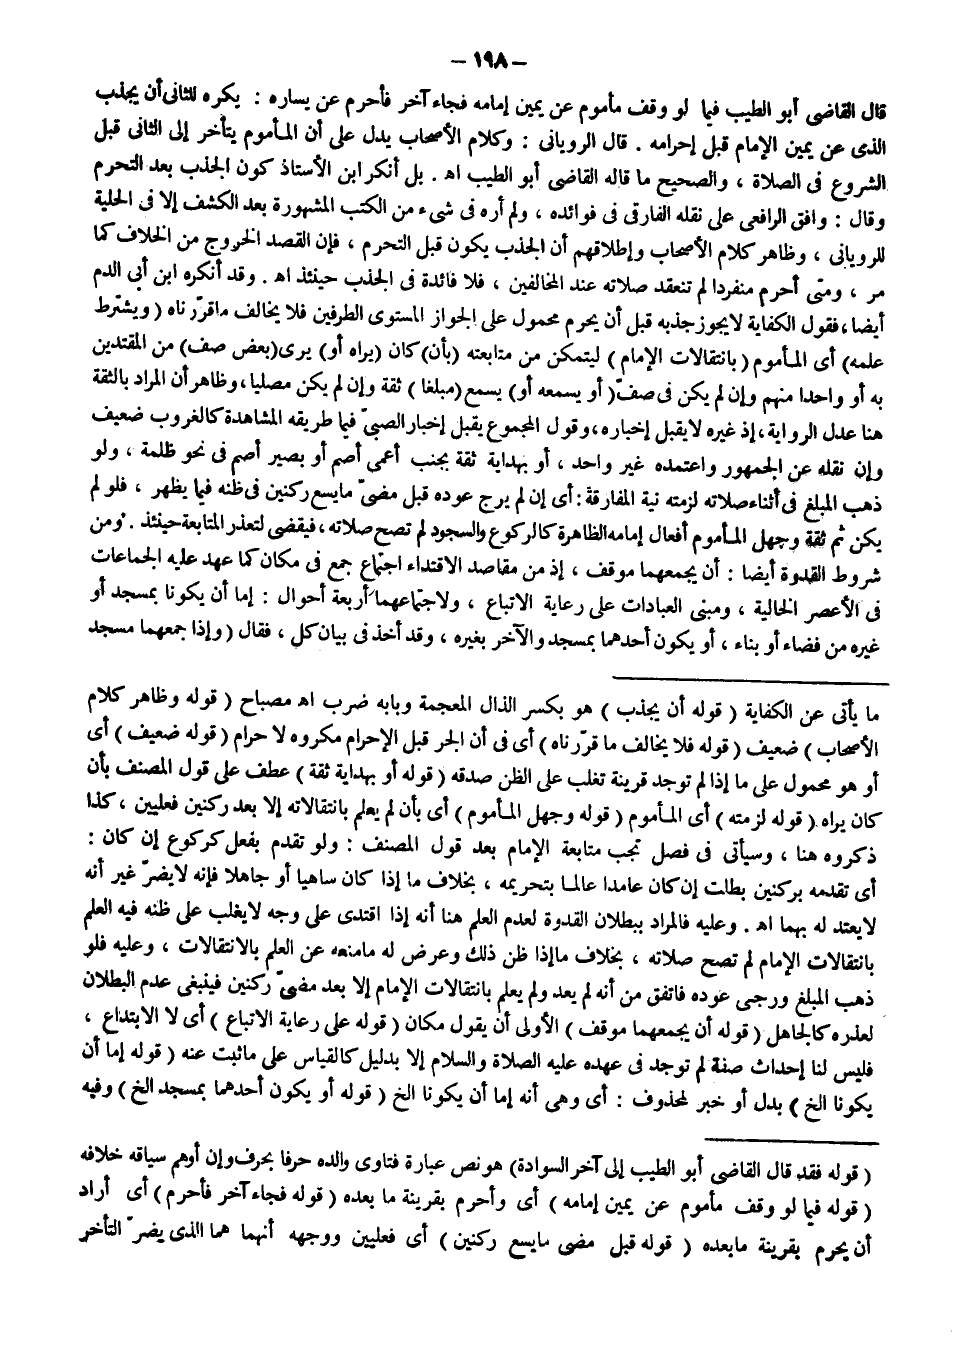 – ١٩٨ –
قال القاضى أبو الطيب فيما لو وقف مأموم عن يمين إمامه فجاء آخر فأحرم عن يساره : يكره للثانى أن يجذب
الذى عن يمين الإمام قبل إحرامه . قال الرويانى : وكلام الأصحاب يدل على أن المأموم يتأخر إلى الثانى قبل
الشروع فى الصلاة ، والصحيح ما قاله القاضى أبو الطيب اه . بل أنكر ابن الأستاذ كون الجذب بعد التحرم
وقال : وافق الرافعى على نقله الفارقى فى فوائده ، ولم أره فى شىء من الكتب المشهورة بعد الكشف إلا فى الحلية
للرويانى ، وظاهر كلام الأصحاب وإطلاقهم أن الجذب يكون قبل التحرم ، فإن القصد الخروج من الخلاف كما
مر ، ومتى أحرم منفردا لم تنعقد صلاته عند المخالفين ، فلا فائدة فى الجذب حينئذ اه . وقد أنكره ابن أبى الدم
أيضا ، فقول الكفاية لا يجوز جذبه قبل أن يحرم محمول على الجواز المستوى الطرفين فلا يخالف ماقرّرناه ( ويشترط
علمه) أى المأموم ( بانتقالات الإمام ) ليتمكن من متابعته (بأن) كان (يراه أو) يرى (بعض صف) من المقتدين
به أو واحدا منهم وإن لم يكن فى صفّ ( أو يسمعه أو) يسمع (مبلغا ) ثقة وإن لم يكن مصليا ، وظاهر أن المراد بالثقة
هنا عدل الرواية ، إذ غيره لا يقبل إخباره ، وقول المجموع يقبل إخبار الصبىّ فيما طريقه المشاهدة كالغروب ضعيف
وإن نقله عن الجمهور واعتمده غير واحد ، أو بهداية ثقة بجنب أعمى أصم أو بصير أصم فى نحو ظلمة ، ولو
ذهب المبلغ فى أثناء صلاته لزمته نية المفارقة : أى إن لم يرج عوده قبل مضىّ مايسع ركنين فى ظنه فيما يظهر ، فلو لم
يكن ثم ثقة وجهل المأموم أفعال إمامه الظاهرة كالركوع والسجود لم تصح صلاته ، فيقضى لتعذر المتابعة حينئذ . ومن
شروط القدوة أيضا : أن يجمعهما موقف ، إذ من مقاصد الاقتداء اجتماع جمع فى مكان كما عهد عليه الجماعات
فى الأعصر الخالية ، ومبنى العبادات على رعاية الاتباع ، ولاجتماعهما أربعة أحوال : إما أن يكونا بمسجد أو
غيره من فضاء أو بناء ، أو يكون أحدهما بمسجد والآخر بغيره ، وقد أخذ فى بيان كل ، فقال ( وإذا جمعهما مسجد
ما يأتى عن الكفاية ( قوله أن يجذب ) هو بكسر الذال المعجمة وبابه ضرب اه مصباح ( قوله وظاهر كلام
الأصحاب ) ضعيف ( قوله فلا يخالف ما قرّرناه ) أى فى أن الجر قبل الإحرام مكروه لا حرام ( قوله ضعيف ) أى
أو هو محمول على ما إذا لم توجد قرينة تغلب على الظن صدقه ( قوله أو بهداية ثقة ) عطف على قول المصنف بأن
كان يراه ( قوله لزمته ) أى المأموم ( قوله وجهل المأموم ) أى بأن لم يعلم بانتقالاته إلا بعد ركنين فعليين ، كذا
ذكروه هنا ، وسيأتى فى فصل تجب متابعة الإمام بعد قول المصنف : ولو تقدم بفعل كركوع إن كان :
أى تقدمه بركنين بطلت إن كان عامدا عالما بتحريمه ، بخلاف ما إذا كان ساهيا أو جاهلا فإنه لايضرّ غير أنه
لايعتد له بهما اه . وعليه فالمراد ببطلان القدوة لعدم العلم هنا أنه إذا اقتدى على وجه لايغلب على ظنه فيه العلم
بانتقالات الإمام لم تصح صلاته ، بخلاف ماإذا ظن ذلك وعرض له مامنعه عن العلم بالانتقالات ، وعليه فلو
ذهب المبلغ ورجى عوده فاتفق من أنه لم يعد ولم يعلم بانتقالات الإمام إلا بعد مضىّ ركنين فينبغى عدم البطلان
لعذره كالجاهل ( قوله أن يجمعهما موقف ) الأولى أن يقول مكان ( قوله على رعاية الاتباع ) أى لا الابتداع ،
فليس لنا إحداث صفة لم توجد فى عهده عليه الصلاة والسلام إلا بدليل كالقياس على ماثبت عنه ( قوله إما أن
يكونا الخ ) بدل أو خبر لمحذوف : أى وهى أنه إما أن يكونا الخ ( قوله أو يكون أحدهما بمسجد الخ ) وفيه
( قوله فقد قال القاضى أبو الطيب إلى آخر السوادة) هو نص عبارة فتاوى والده حرفا بحرف وإن أوهم سياقه خلافه
( قوله فيما لو وقف مأموم عن يمين إمامه ) أى وأحرم بقرينة ما بعده ( قوله فجاء آخر فأحرم ) أى أراد
أن يحرم بقرينة مابعده ( قوله قبل مضى مايسع ركنين ) أى فعليين ووجهه أنهما هما الذى يضرّ التأخر